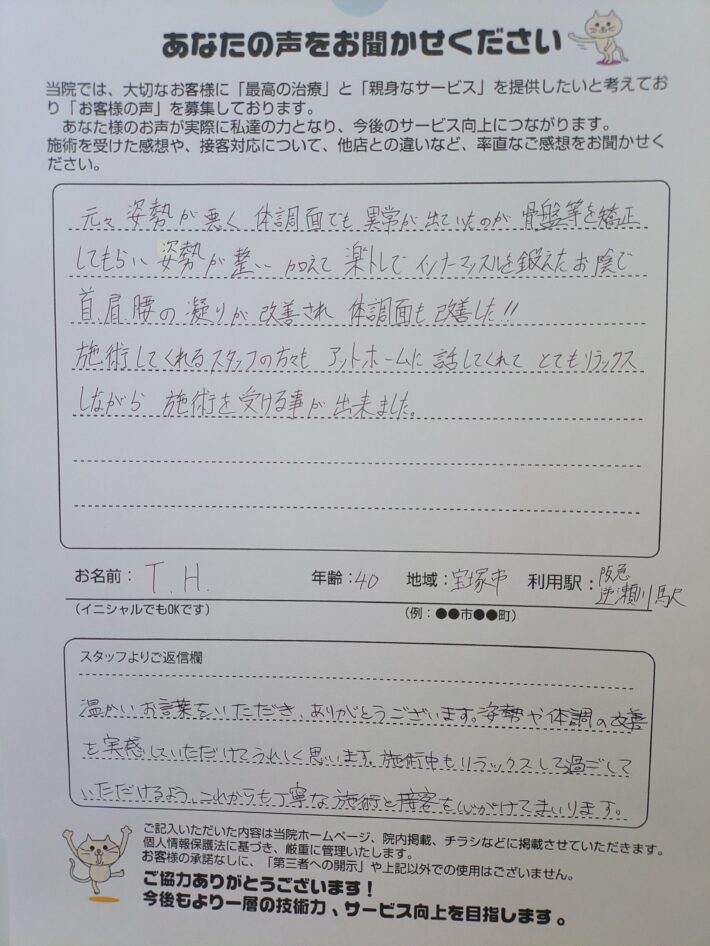 あなたの声をお聞かせください
当院では、大切なお客様に「最高の治療」と「親身なサービス」を提供したいと考えてお
り「お客様の声」を募集しております。
あなた様のお声が実際に私達の力となり、今後のサービス向上につながります。
施術を受けた感想や、接客対応について、他店との違いなど、率直なご感想をお聞かせく
ださい。
元々 姿勢が悪く 体調面でも 異常が出ていたのが 骨盤等を矯正
してもらい 姿勢が整い 加えて 楽トレで インナーマッスルを鍛えたお陰で
首、肩、腰の凝りが改善され 体調面も改善した!!
施術してくれるスタッフの方々も アットホームに 話してくれて とてもリラックス
しながら 施術を受ける事が出来ました。
お名前：T.H. 年齢：40 地域：宝塚市 利用駅：阪急 逆瀬川駅
(イニシャルでもOKです) (例：●●市●●町)
スタッフよりご返信欄
温かいお言葉をいただき、ありがとうございます。姿勢や体調の改善
を実感していただけてうれしく思います。施術中もリラックスして過ごして
いただけるよう、これからも丁寧な施術と接客を心がけてまいります。
ご記入いただいた内容は当院ホームページ、院内掲載、チラシなどに掲載させていただきます。
個人情報保護法に基づき、厳重に管理いたします。
お客様の承諾なしに、「第三者への開示」や上記以外での使用はございません。
ご協力ありがとうございます！
今後もより一層の技術力、サービス向上を目指します。